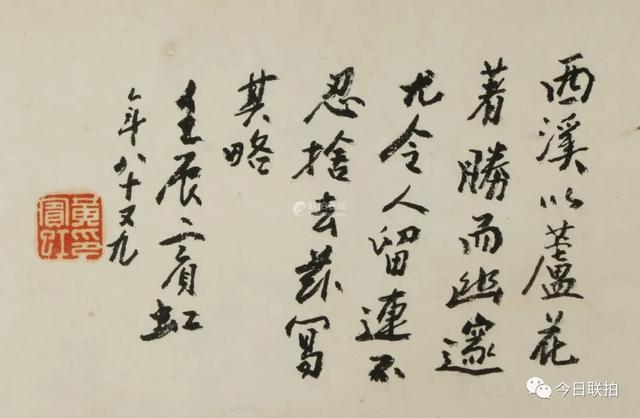 西溪以蘆花
著勝而幽邃
尤令人留連不
忍捨去茲寫
其略
壬辰賓虹
年八十又九
黃賓虹印
今日联拍